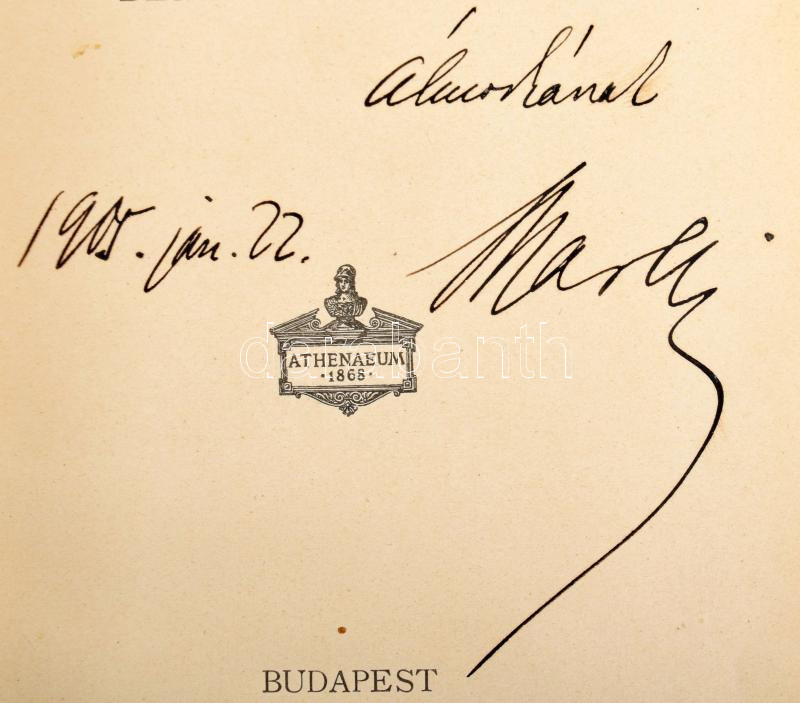 Álmoskának
1905. jan. 22.
ATHENAEUM
·1868·
darabanth
BUDAPEST